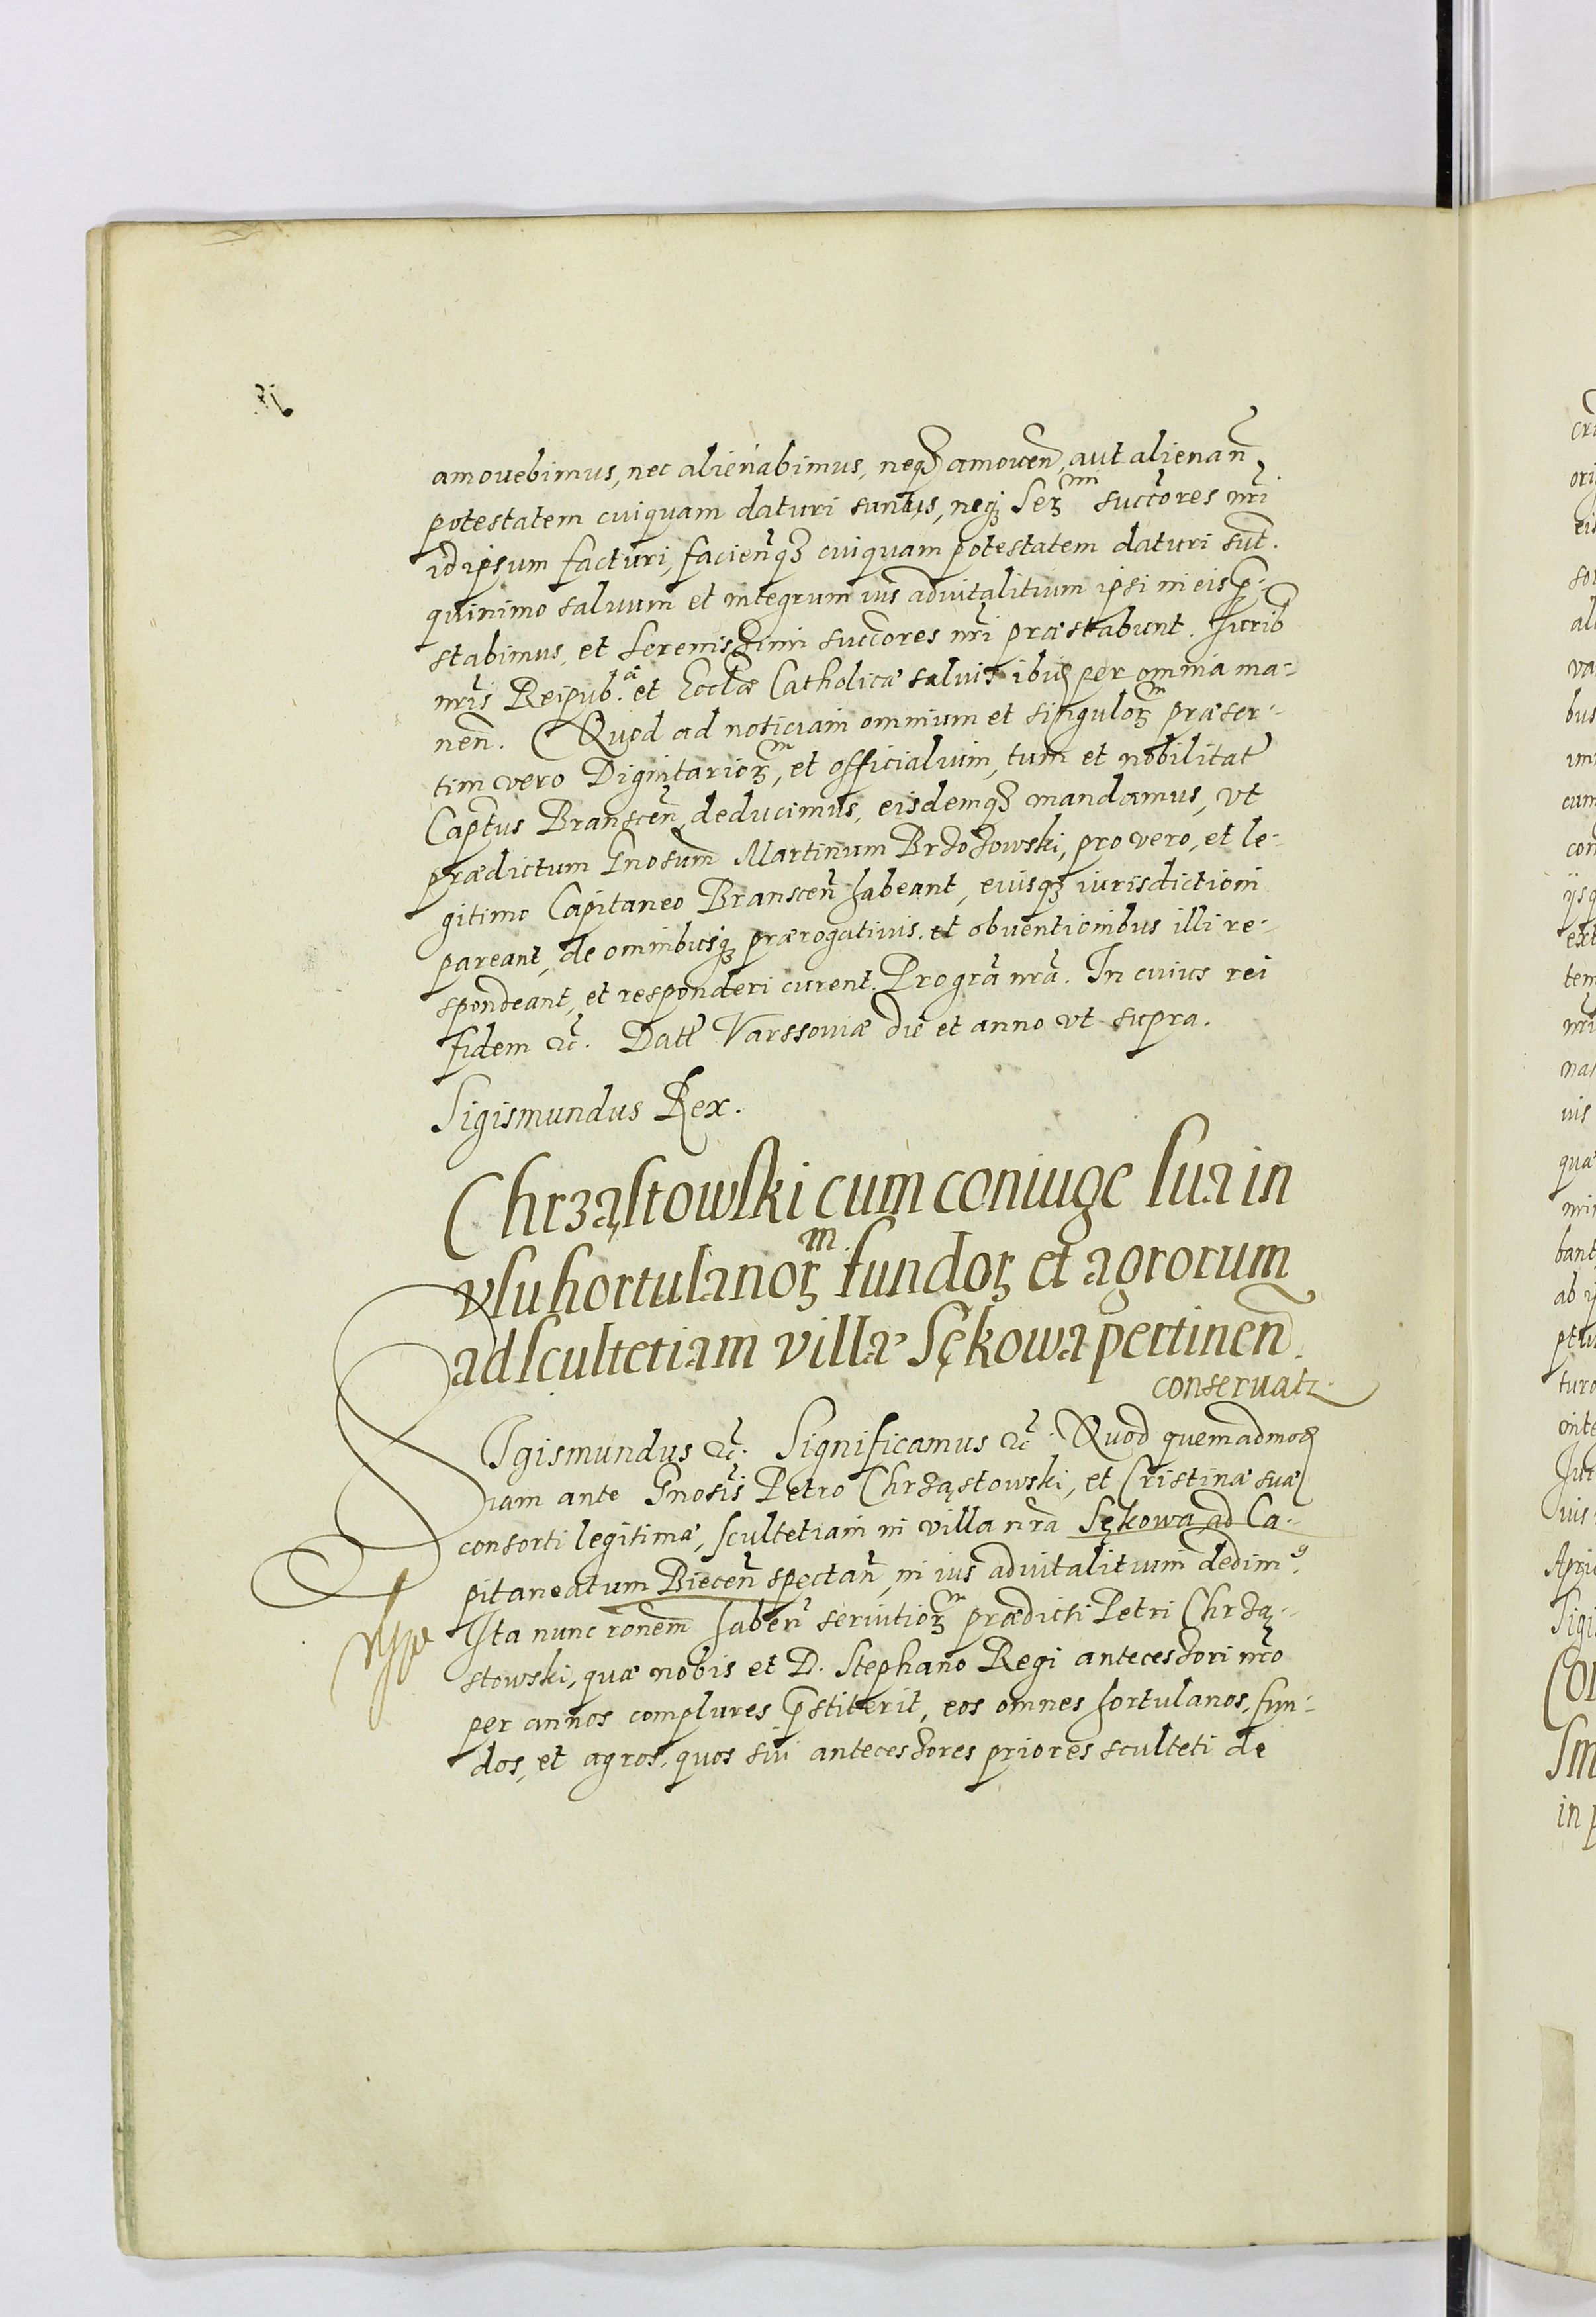 amouebimus, nec alienabimus, neqꝫ amouen̄, aut alienan̄
potestatem cuiquam daturi sumus, neqꝫ Serᵐⁱ succ̄ores nr̄i
id ipsum facturi, facien̄qꝫ cuiquam potestatem daturi sūt.
quinimo saluum et integrum ius aduitalitium ipsi in eis p̄-
stabimus, et Serenissimi succōres nr̄i præstabunt. Jurib
nr̄is Reipub.ᵃᵉ et Eccl̄æ Catholicæ saluis ibiꝗ per omnia ma-
nen̄. Quod ad noticiam omnium et singuloꝝᵐ præser-
tim vero Dignitarioꝝᵐ, et officialium, tum et nobilitat̄
Capt̄us Branscen̄, deducimus, eisdemqꝫ mandamus, vt
prædictum Gnosum̄ Martinum Brzozowski, pro vero, et le-
gitimo Capitaneo Branscen̄ habeant, eiusqꝫ iurisdictioni
pareant, de omnibusqꝫ prærogatiuis, et obuentionibus illi re-
spondeant, et responderi curent. Pro grā nrā. In cuius rei
fidem ꝛc̄. Datt̄ Varssouiæ die et anno vt supra.
Sigismundus Rex.
Chrząstowski cum coniuge sua in
vsu hortulanoꝝᵐ. fundoꝝ et agrorum
ad scultetiam villæ Sękowa pertinen̄.
conseruatꝛ.
SIgismundus ꝛc̄. Significamus ꝛc̄. Quod quemadmoꝗ
iam ante Gnosis̄ Petro Chrząstowski, et Cristinæ suæ
consorti legitimæ, scultetiam in villa nrā Sękowa ad Ca-
pitaneatum Biecen̄ spectan̄, in ius aduitalitium dedimꝰ.
Ita nunc rōnem̄ haben̄ seruitioꝝᵐ prædicti Petri Chrzą-
stowski, quæ nobis et D. Stephano Regi antecessori nrō
per annos complures p̄stiterit, eos omnes hortulanos, fun-
dos, et agros, quos sui antecessores priores sculteti de